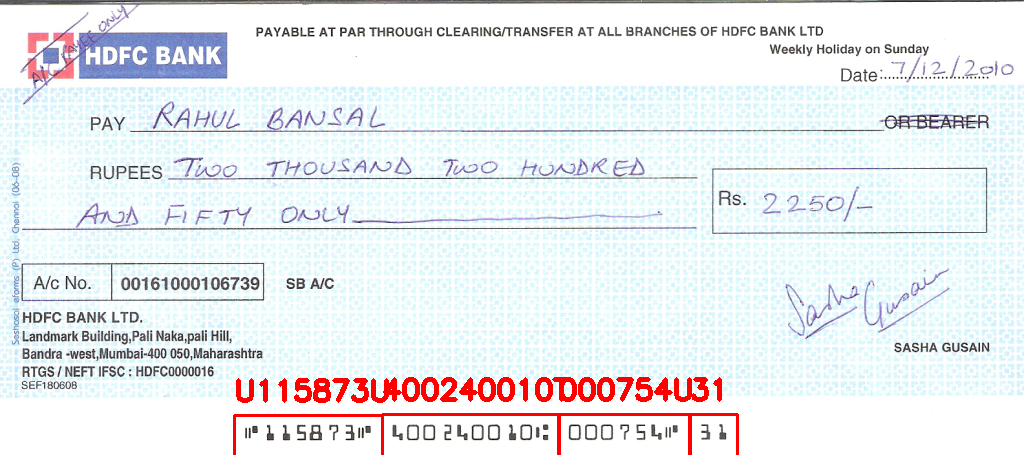 A/C PAYEE ONLY
HDFC BANK
PAYABLE AT PAR THROUGH CLEARING/TRANSFER AT ALL BRANCHES OF HDFC BANK LTD
Weekly Holiday on Sunday
Date: 7/12/2010
PAY RAHUL BANSAL OR BEARER
RUPEES TWO THOUSAND TWO HUNDRED
AND FIFTY ONLY
Rs. 2250/-
A/c No. 00161000106739 SB A/C
Sasha Gusain
HDFC BANK LTD.
Landmark Building,Pali Naka,pali Hill,
Bandra -west,Mumbai-400 050,Maharashtra
RTGS / NEFT IFSC : HDFC0000016
SEF180608
SASHA GUSAIN
U115873U 400240010T 000754U 31
⑈115873⑈ 400240010⑆ 000754⑈ 31